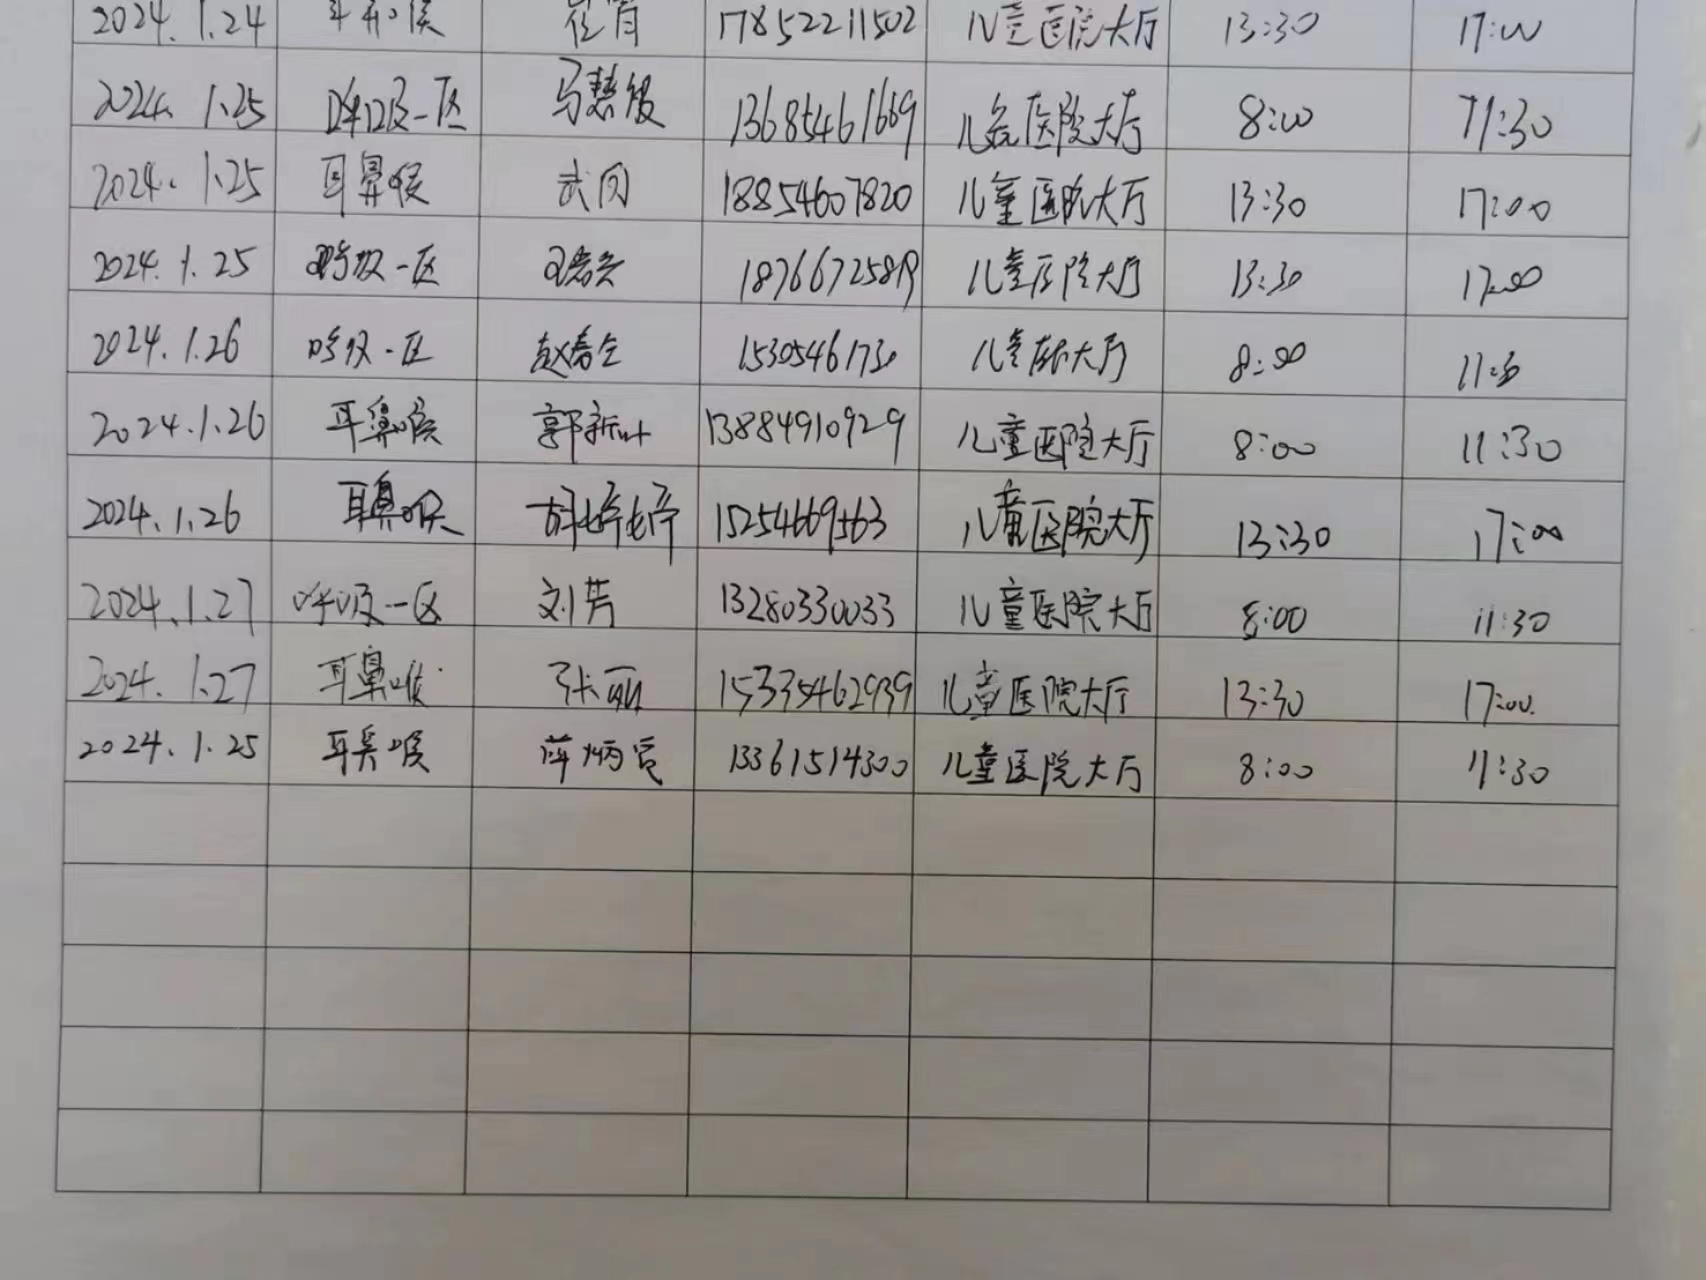 2024.1.24 耳鼻喉 17852211502 儿童医院大厅 13:30 17:00
2024.1.25 呼吸一区 马慧敏 13685461669 儿童医院大厅 8:00 11:30
2024.1.25 耳鼻喉 武闪 18854607820 儿童医院大厅 13:30 17:00
2024.1.25 呼吸一区 18766725819 儿童医院大厅 13:30 17:00
2024.1.26 呼吸一区 赵春兰 15305461730 儿童医院大厅 8:00 11:30
2024.1.26 耳鼻喉 郭新叶 13884910929 儿童医院大厅 8:00 11:30
2024.1.26 耳鼻喉 胡婷婷 15254669563 儿童医院大厅 13:30 17:00
2024.1.27 呼吸一区 刘芳 13280330033 儿童医院大厅 8:00 11:30
2024.1.27 耳鼻喉 张丽 15335462939 儿童医院大厅 13:30 17:00
2024.1.25 耳鼻喉 13361514300 儿童医院大厅 8:00 11:30